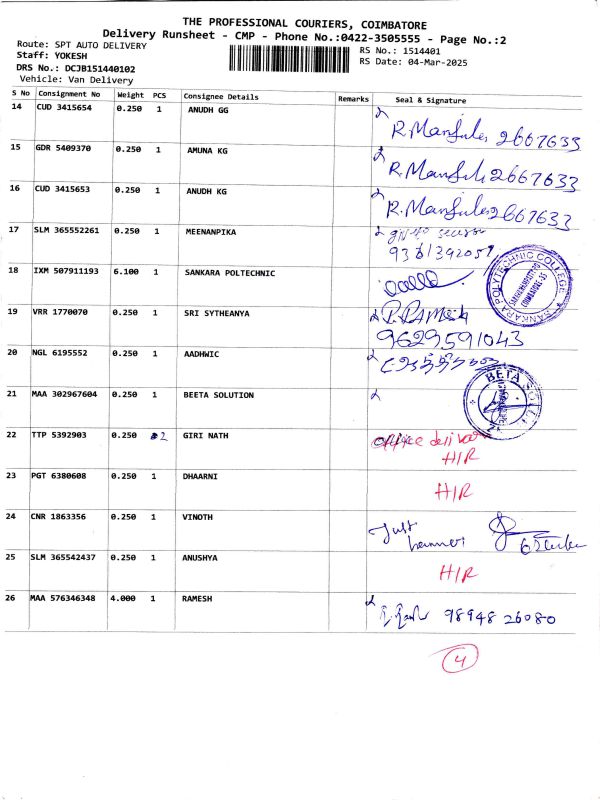 THE PROFESSIONAL COURIERS, COIMBATORE
Delivery Runsheet - CMP - Phone No.:0422-3505555 - Page No.:2
Route: SPT AUTO DELIVERY
Staff: YOKESH
DRS No.: DCJB151440102
Vehicle: Van Delivery
RS No.: 1514401
RS Date: 04-Mar-2025
S No Consignment No Weight PCS Consignee Details Remarks Seal & Signature
14 CUD 3415654 0.250 1 ANUDH GG
R. 2667633
15 GDR 5409370 0.250 1 AMUNA KG
R. 2667633
16 CUD 3415653 0.250 1 ANUDH KG
R. 2667633
17 SLM 365552261 0.250 1 MEENANPIKA
9361392051
18 IXM 507911193 6.100 1 SANKARA POLTECHNIC
SANKARA POLYTECHNIC COLLEGE
19 VRR 1770070 0.250 1 SRI SYTHEANYA
P. RAMESH
9629591043
20 NGL 6195552 0.250 1 AADHWIC
21 MAA 302967604 0.250 1 BEETA SOLUTION
BETA
22 TTP 5392903 0.250 2 GIRI NATH
office
H/R
23 PGT 6380608 0.250 1 DHAARNI
H/R
24 CNR 1863356 0.250 1 VINOTH
25 SLM 365542437 0.250 1 ANUSHYA
H/R
26 MAA 576346348 4.000 1 RAMESH
98948 26080
4